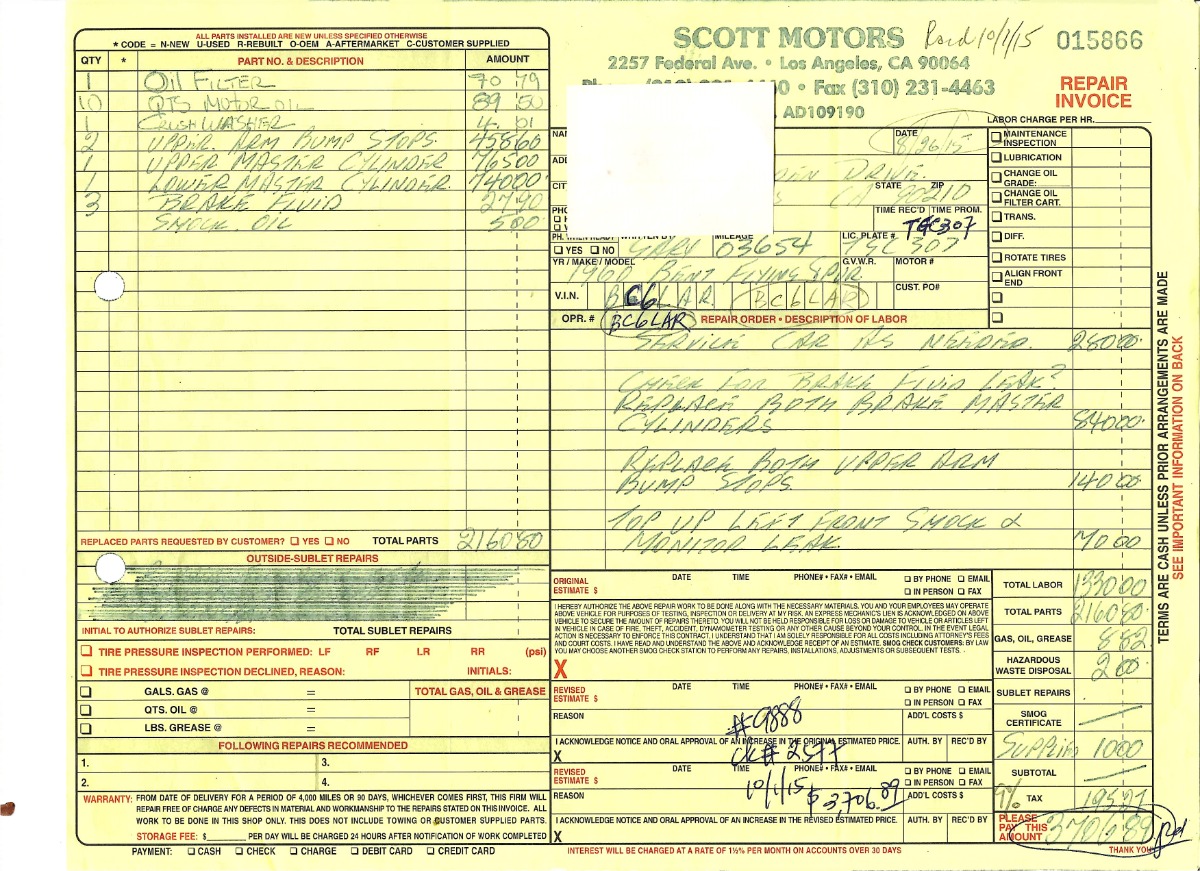 ALL PARTS INSTALLED ARE NEW UNLESS SPECIFIED OTHERWISE
* CODE = N-NEW U-USED R-REBUILT O-OEM A-AFTERMARKET C-CUSTOMER SUPPLIED
QTY * PART NO. & DESCRIPTION AMOUNT
1 OIL FILTER 70 79
10 QTS MOTOR OIL 89 50
1 CRUSH WASHER 4. 01
2 UPPER. ARM BUMP STOPS. 458 60
1 UPPER MASTER CYLINDER 765 00
1 LOWER MASTER CYLINDER. 740 00
3 BRAKE FLUID 27 90
SHOCK OIL 5 00
REPLACED PARTS REQUESTED BY CUSTOMER? YES NO TOTAL PARTS 2160 80
OUTSIDE-SUBLET REPAIRS
INITIAL TO AUTHORIZE SUBLET REPAIRS: TOTAL SUBLET REPAIRS
TIRE PRESSURE INSPECTION PERFORMED: LF RF LR RR (psi)
TIRE PRESSURE INSPECTION DECLINED, REASON: INITIALS:
GALS. GAS @ = TOTAL GAS, OIL & GREASE
QTS. OIL @ =
LBS. GREASE @ =
FOLLOWING REPAIRS RECOMMENDED
1. 3.
2. 4.
WARRANTY: FROM DATE OF DELIVERY FOR A PERIOD OF 4,000 MILES OR 90 DAYS, WHICHEVER COMES FIRST, THIS FIRM WILL
REPAIR FREE OF CHARGE ANY DEFECTS IN MATERIAL AND WORKMANSHIP TO THE REPAIRS STATED ON THIS INVOICE. ALL
WORK TO BE DONE IN THIS SHOP ONLY. THIS DOES NOT INCLUDE TOWING OR CUSTOMER SUPPLIED PARTS.
STORAGE FEE: $______ PER DAY WILL BE CHARGED 24 HOURS AFTER NOTIFICATION OF WORK COMPLETED
PAYMENT: CASH CHECK CHARGE DEBIT CARD CREDIT CARD
SCOTT MOTORS 10/1/15 015866
2257 Federal Ave. • Los Angeles, CA 90064
• Fax (310) 231-4463
AD109190
REPAIR
INVOICE
LABOR CHARGE PER HR.
DATE
8/26/15
DRIVE.
CITY STATE ZIP
CA 90210
TIME REC'D TIME PROM.
TGC307
YES NO GARY MILEAGE 03654 LIC. PLATE # TGC 307
YR / MAKE / MODEL G.V.W.R. MOTOR #
1960 BENT FLYING SPUR
V.I.N. BC6LAR BC6LAR CUST. PO#
OPR. # BC6LAR REPAIR ORDER • DESCRIPTION OF LABOR
MAINTENANCE INSPECTION
LUBRICATION
CHANGE OIL GRADE:
CHANGE OIL FILTER CART.
TRANS.
DIFF.
ROTATE TIRES
ALIGN FRONT END
SERVICE CAR AS NEEDED. 280 00
CHECK FOR BRAKE FLUID LEAK?
REPLACE BOTH BRAKE MASTER
CYLINDERS 840 00
REPLACE BOTH UPPER ARM
BUMP STOPS. 140 00
TOP UP LEFT FRONT SHOCK &
MONITOR LEAK 70 00
ORIGINAL ESTIMATE $ DATE TIME PHONE# • FAX# • EMAIL BY PHONE EMAIL IN PERSON FAX
I HEREBY AUTHORIZE THE ABOVE REPAIR WORK TO BE DONE ALONG WITH THE NECESSARY MATERIALS. YOU AND YOUR EMPLOYEES MAY OPERATE
ABOVE VEHICLE FOR PURPOSES OF TESTING, INSPECTION OR DELIVERY AT MY RISK. AN EXPRESS MECHANIC'S LIEN IS ACKNOWLEDGED ON ABOVE
VEHICLE TO SECURE THE AMOUNT OF REPAIRS THERETO. YOU WILL NOT BE HELD RESPONSIBLE FOR LOSS OR DAMAGE TO VEHICLE OR ARTICLES LEFT
IN VEHICLE IN CASE OF FIRE, THEFT, ACCIDENT, DYNAMOMETER TESTING OR ANY OTHER CAUSE BEYOND YOUR CONTROL. IN THE EVENT LEGAL
ACTION IS NECESSARY TO ENFORCE THIS CONTRACT, I UNDERSTAND THAT I AM SOLELY RESPONSIBLE FOR ALL COSTS INCLUDING ATTORNEY'S FEES
AND COURT COSTS. I HAVE READ AND UNDERSTAND THE ABOVE AND ACKNOWLEDGE RECEIPT OF AN ESTIMATE. SMOG CHECK CUSTOMERS: BY LAW
YOU MAY CHOOSE ANOTHER SMOG CHECK STATION TO PERFORM ANY REPAIRS, INSTALLATIONS, ADJUSTMENTS OR SUBSEQUENT TESTS.
X
REVISED ESTIMATE $ DATE TIME PHONE# • FAX# • EMAIL BY PHONE EMAIL IN PERSON FAX
REASON #9888 ADD'L COSTS $
I ACKNOWLEDGE NOTICE AND ORAL APPROVAL OF AN INCREASE IN THE ORIGINAL ESTIMATED PRICE. AUTH. BY REC'D BY
X CK# 2577
REVISED ESTIMATE $ DATE TIME PHONE# • FAX# • EMAIL BY PHONE EMAIL IN PERSON FAX
REASON 10/1/15 $3706.89 ADD'L COSTS $
I ACKNOWLEDGE NOTICE AND ORAL APPROVAL OF AN INCREASE IN THE REVISED ESTIMATED PRICE. AUTH. BY REC'D BY
X
TOTAL LABOR 1330 00
TOTAL PARTS 2160 80
GAS, OIL, GREASE 8 82
HAZARDOUS WASTE DISPOSAL 2 00
SUBLET REPAIRS
SMOG CERTIFICATE
SUPPLIES 10 00
SUBTOTAL
9% TAX 195 27
PLEASE PAY THIS AMOUNT 3706 89
THANK YOU
INTEREST WILL BE CHARGED AT A RATE OF 1½% PER MONTH ON ACCOUNTS OVER 30 DAYS
TERMS ARE CASH UNLESS PRIOR ARRANGEMENTS ARE MADE
SEE IMPORTANT INFORMATION ON BACK